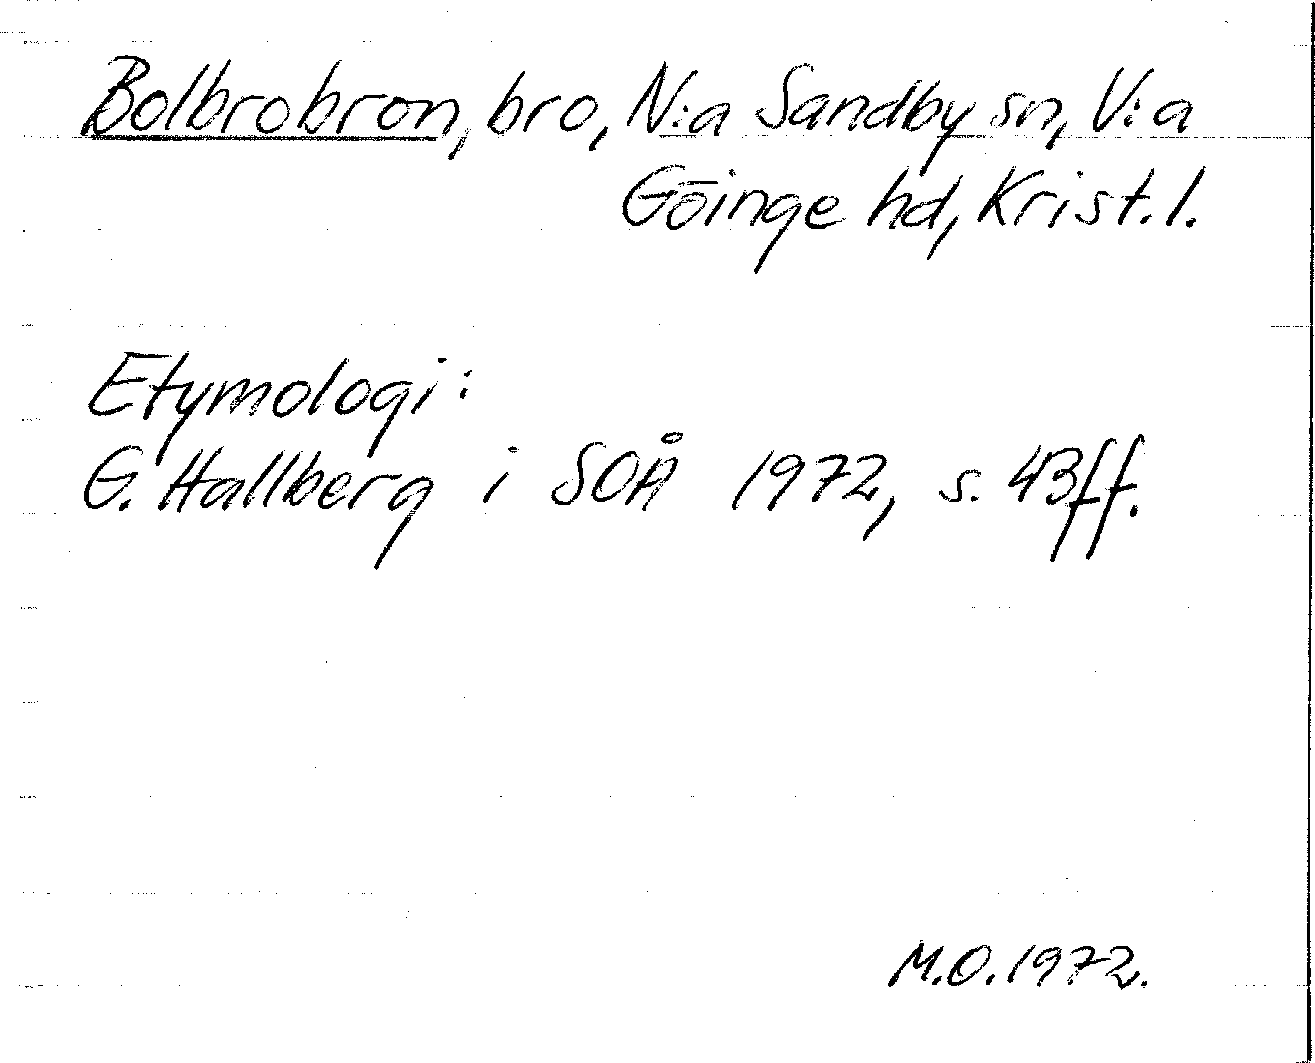 Bolbrobron, bro, N:a Sandby sn, V:a
Göinge hd, Krist. l.
Etymologi:
G. Hallberg i SOÅ 1972, s. 43ff.
M.O. 1972.